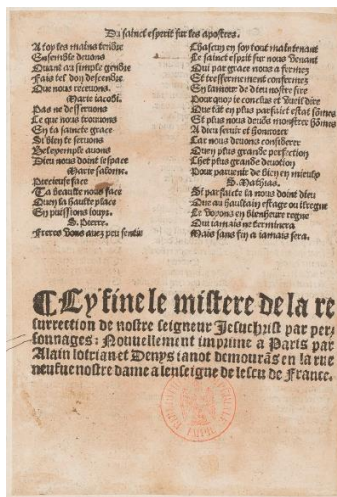 Du sainct esperit sur les apostres.
A toy les mains tendre
Ensemble devons
Quant au simple gendre
Fais tel don descendre
Que nous recevons.
Marie iacobi.
Pas ne desservons
Ce que nous trouvons
En ta saincte grace
Si bien te servons
Belexemple avons
Dieu nous doint lespace
Marie salome.
Precieuse face
Ta beaulte nous face
Quen la haulte place
En puissions iouyr.
S. Pierre.
Freres vous avez peu sentir
Chascun en soy tout maintenant
Le sainct esprit sur nous venant
Qui par grace nous a fermez
Et tresfermement confermez
En lamour de dieu nostre sire
Pourquoy ie conclus et vueil dire
Que tāt en plus parfaict estat sōmes
Et plus nous devōs monstrer hōmes
A dieu servir et honnorer
Car nous devons considerer
Quen plus grande perfection
Chet plus grande devotion
Pour parvenir de bien en mieulx
S. Mathias.
Si parfaicte la nous doint dieu
Que au haultain estage ou il regne
Le voyons en bienheure regne
Qui iamais ne terminera
Mais sans fin a iamais sera.
¶ Cy fine le mistere de la re
surrection de nostre seigneur Jesuchrist par per-
sonnages: Nouvellement imprime a Paris par
Alain lotrian et Denys ianot demourās en la rue
neufue nostre dame a lenseigne de lescu de France.